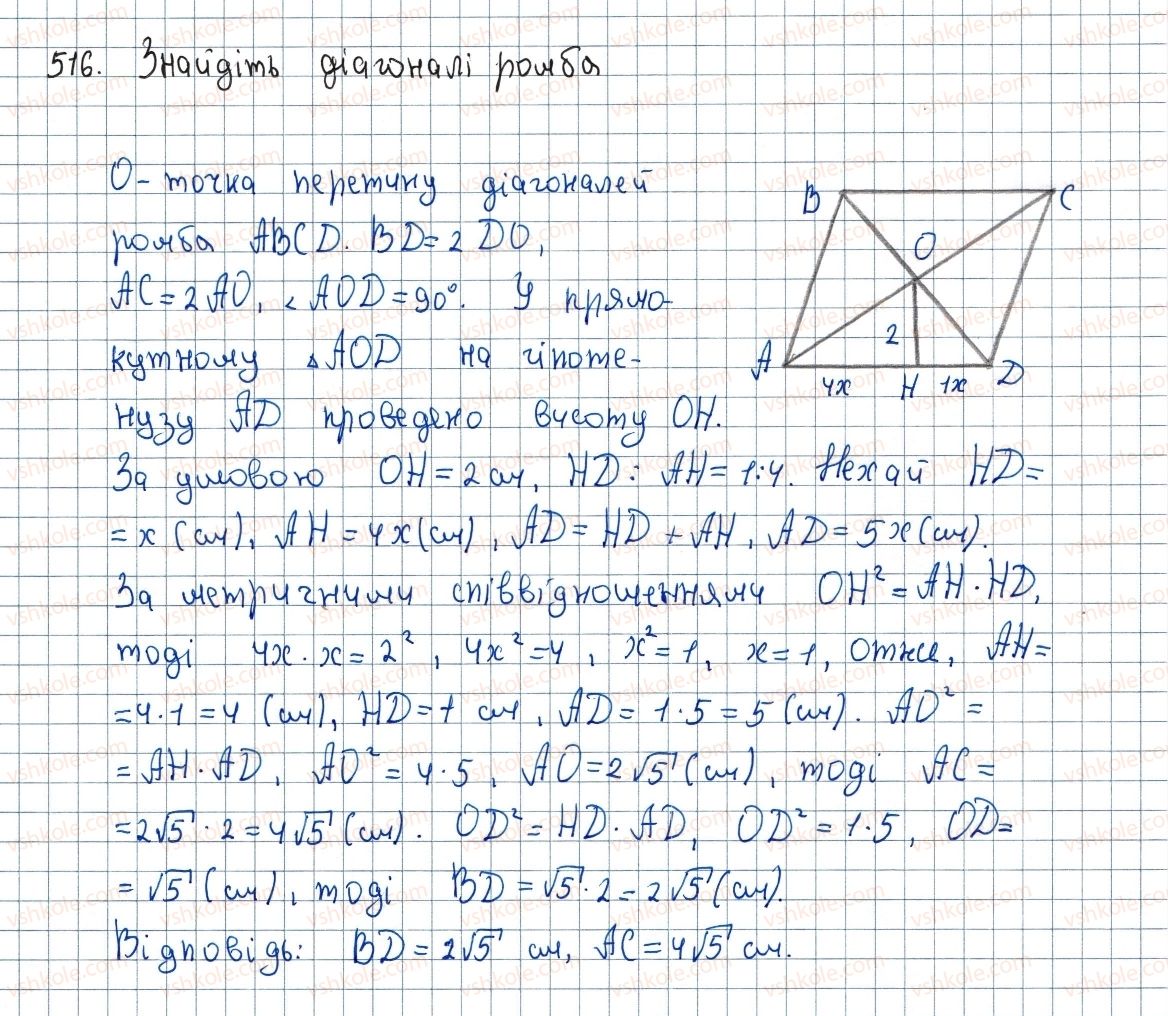 516. Знайдіть діагоналі ромба
О - точка перетину діагоналей
ромба ABCD. BD = 2 DO,
AC = 2 AO, ∠ AOD = 90°. У прямо-
кутному △ AOD на гіпоте-
нузу AD проведено висоту OH.
За умовою OH = 2 см, HD : AH = 1:4. Нехай HD =
= x (см), AH = 4x (см), AD = HD + AH, AD = 5x (см).
За метричними співвідношеннями OH² = AH · HD,
тоді 4x · x = 2², 4x² = 4, x² = 1, x = 1, отже, AH =
= 4 · 1 = 4 (см), HD = 1 см, AD = 1 · 5 = 5 (см). AO² =
= AH · AD, AO² = 4 · 5, AO = 2√5 (см), тоді AC =
= 2√5 · 2 = 4√5 (см). OD² = HD · AD, OD² = 1 · 5, OD =
= √5 (см), тоді BD = √5 · 2 = 2√5 (см).
Відповідь: BD = 2√5 см, AC = 4√5 см.
B C
O
2
A H D
4x 1x
vshkole.com